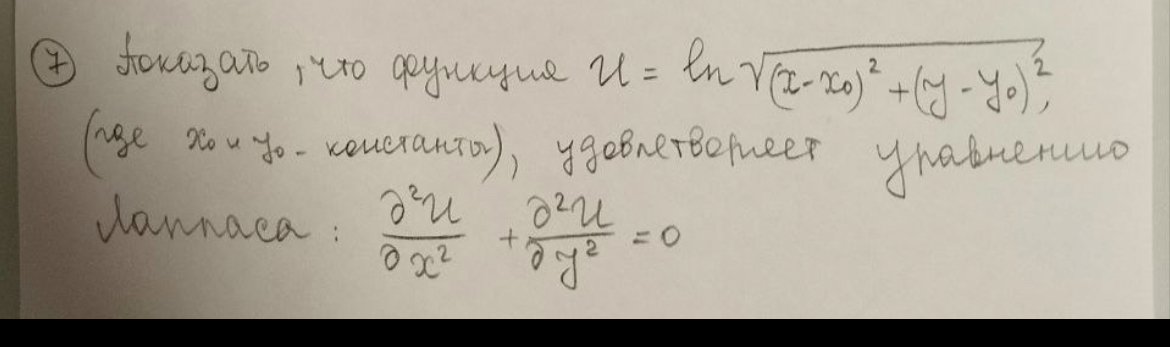 ⑦ Показать, что функция U = ln √(x-x₀)² + (y-y₀)²,
(где x₀ и y₀ - константы), удовлетворяет уравнению
Лапласа: ∂²U/∂x² + ∂²U/∂y² = 0